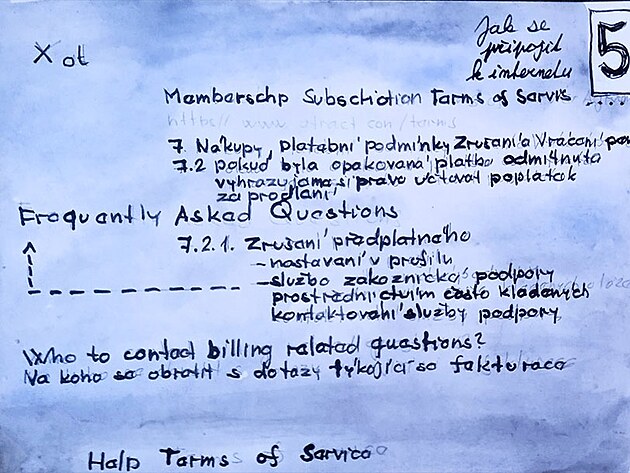 Jak se
připojit
k internetu
5
X ot
Mambarschp Subschiotion Tarms of Sarvis
https// www
7. Nákupy, platabní podmínky Zrušaní a Vrácaní
7.2 pokud byla opakovaná platba odmítnuta
vyhrazujama si právo účtovat poplatak
za prodlaní
Fraquantly Askad Quastions
7.2.1. Zrušaní prádplatnáho
– nastavaní v profilu
– službo zákoznická podpory
prostřadnictvím často kladaných
kontaktování služby podpory
Who to contact billing ralatad quastions?
Na koho sa obrátit s dotazy týkající sa fakturaca
Halp Tarms of Sarvica